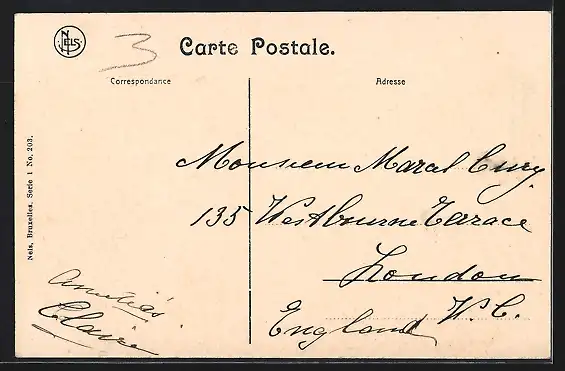 NELS
3
Carte Postale.
Correspondance
Adresse
Nels, Bruxelles. Serie 1 No. 203.
Monsieur Marcel
135 Westbourne Terrace
London
W. C.
England
Amitiés
Claire